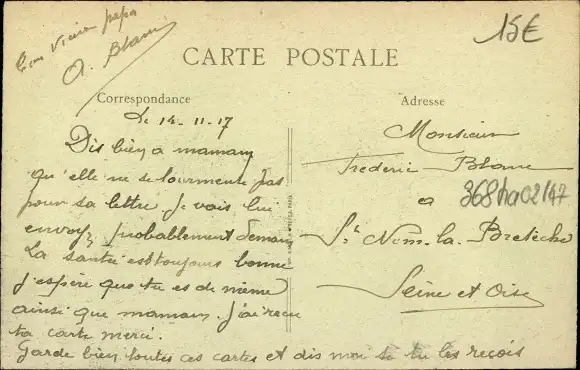 ton vieux papa
A. Blanc
15€
CARTE POSTALE
Correspondance
Le 14-11-17
Dis bien a mamam
qu'elle ne se tourmente pas
pour sa lettre je vais lui
envoyz probablement demain
La santée est toujours bonne
j'espère que tu es de même
ainsi que mamam. J'ai recu
ta carte merci.
Garde bien toutes ces cartes et dis moi si tu les recois
Adresse
Monsieur
Frederic Blanc
a
368ha02/47
St Nom-la-Bretèche
Seine et Oise